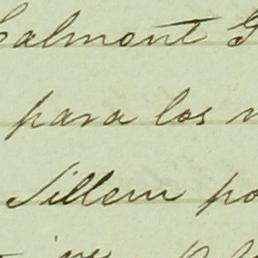 Calmont G
para los
Sillem po